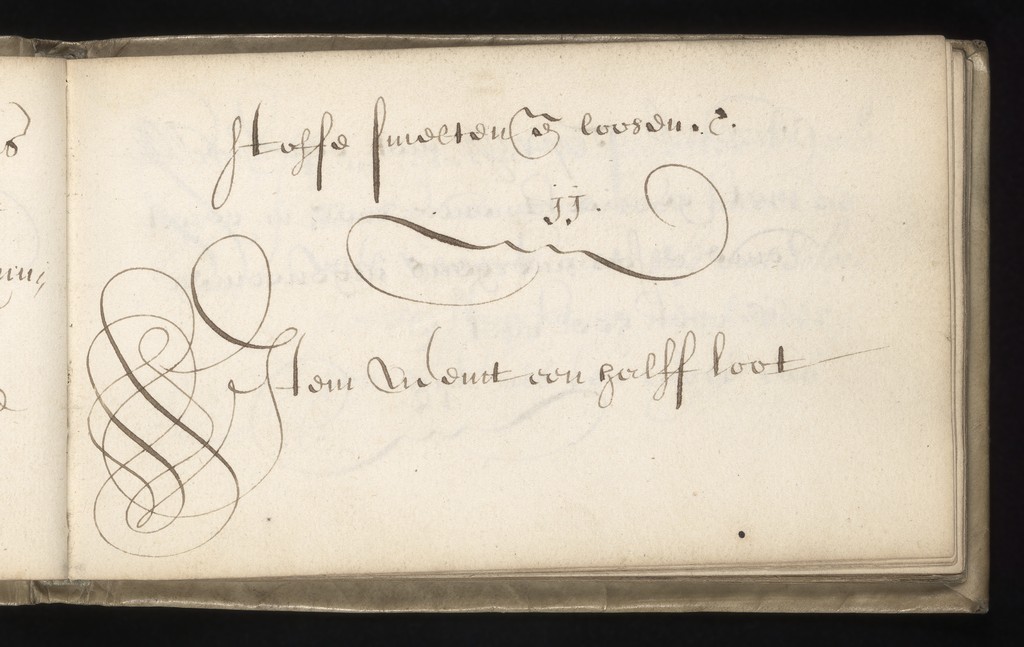 stoffe smelten en loosen. &.
jj.
Item Neemt een halff loot